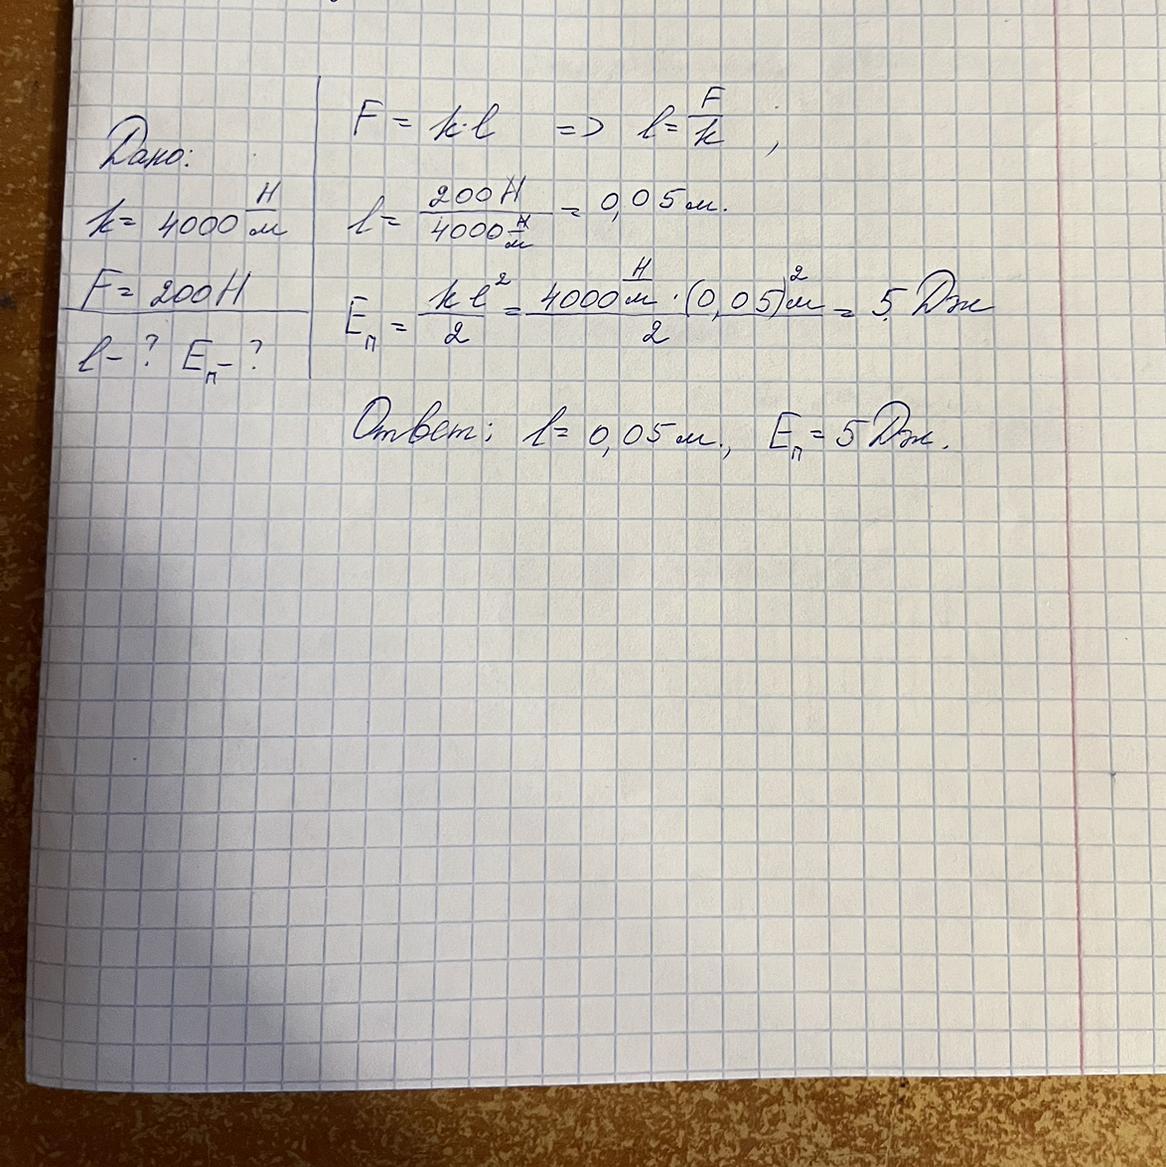 Дано:
k = 4000 Н/м
F = 200 Н
l - ? Eп - ?
F = k·l => l = F/k ,
l = 200 Н / 4000 Н/м = 0,05 м.
Eп = kl²/2 = 4000 Н/м · (0,05)² м / 2 = 5 Дж
Ответ: l = 0,05 м., Eп = 5 Дж.